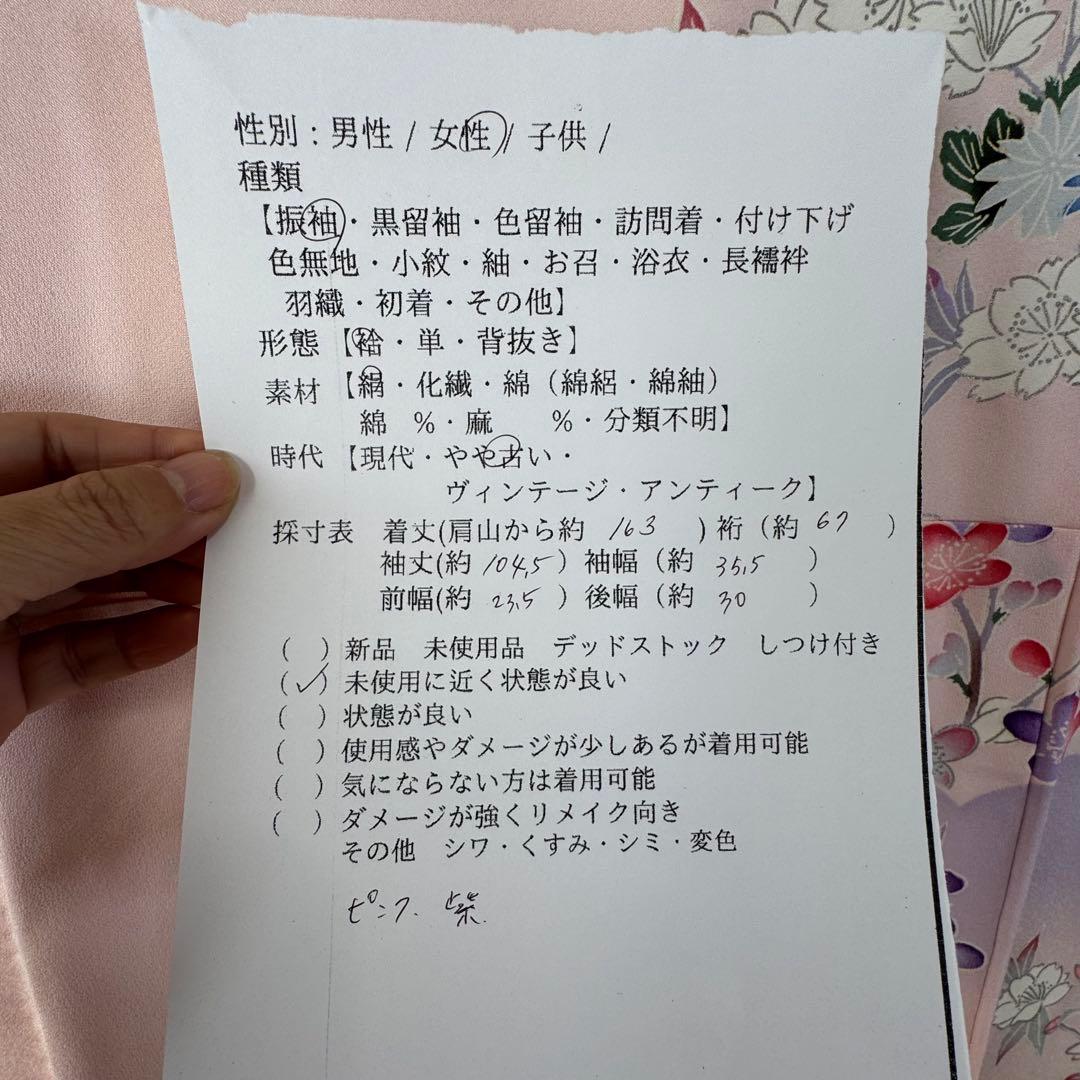 性別：男性 / 女性 / 子供 /
種類
【振袖・黒留袖・色留袖・訪問着・付け下げ
色無地・小紋・紬・お召・浴衣・長襦袢
羽織・初着・その他】
形態【袷・単・背抜き】
素材【絹・化繊・綿（綿絽・綿紬）
綿 %・麻 %・分類不明】
時代【現代・やや古い・
ヴィンテージ・アンティーク】
採寸表 着丈(肩山から約 163 ) 裄（約 67 ）
袖丈(約 104,5 ) 袖幅（約 35,5 ）
前幅(約 23,5 ) 後幅（約 30 ）
( ) 新品 未使用品 デッドストック しつけ付き
(✓) 未使用に近く状態が良い
( ) 状態が良い
( ) 使用感やダメージが少しあるが着用可能
( ) 気にならない方は着用可能
( ) ダメージが強くリメイク向き
その他 シワ・くすみ・シミ・変色
ピンク. 紫.